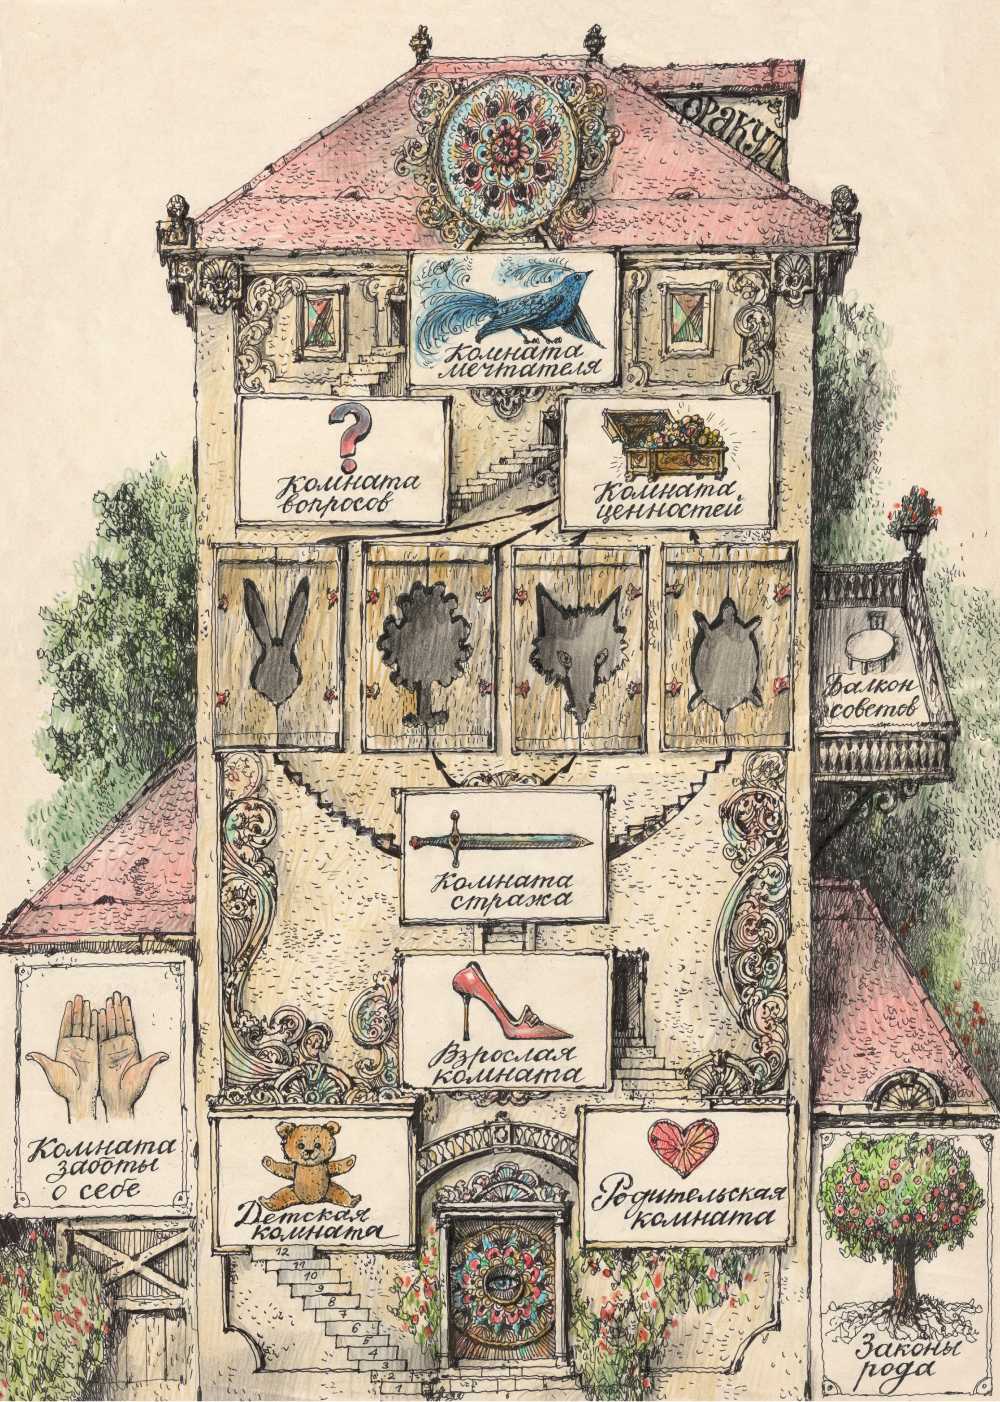 ОРАКУЛ
Комната
мечтателя
Комната
вопросов
Комната
ценностей
Балкон
советов
Комната
стража
Взрослая
комната
Комната
заботы
о себе
Детская
комната
Родительская
комната
12
11
10
9
8
7
6
5
4
3
2
1
Законы
рода